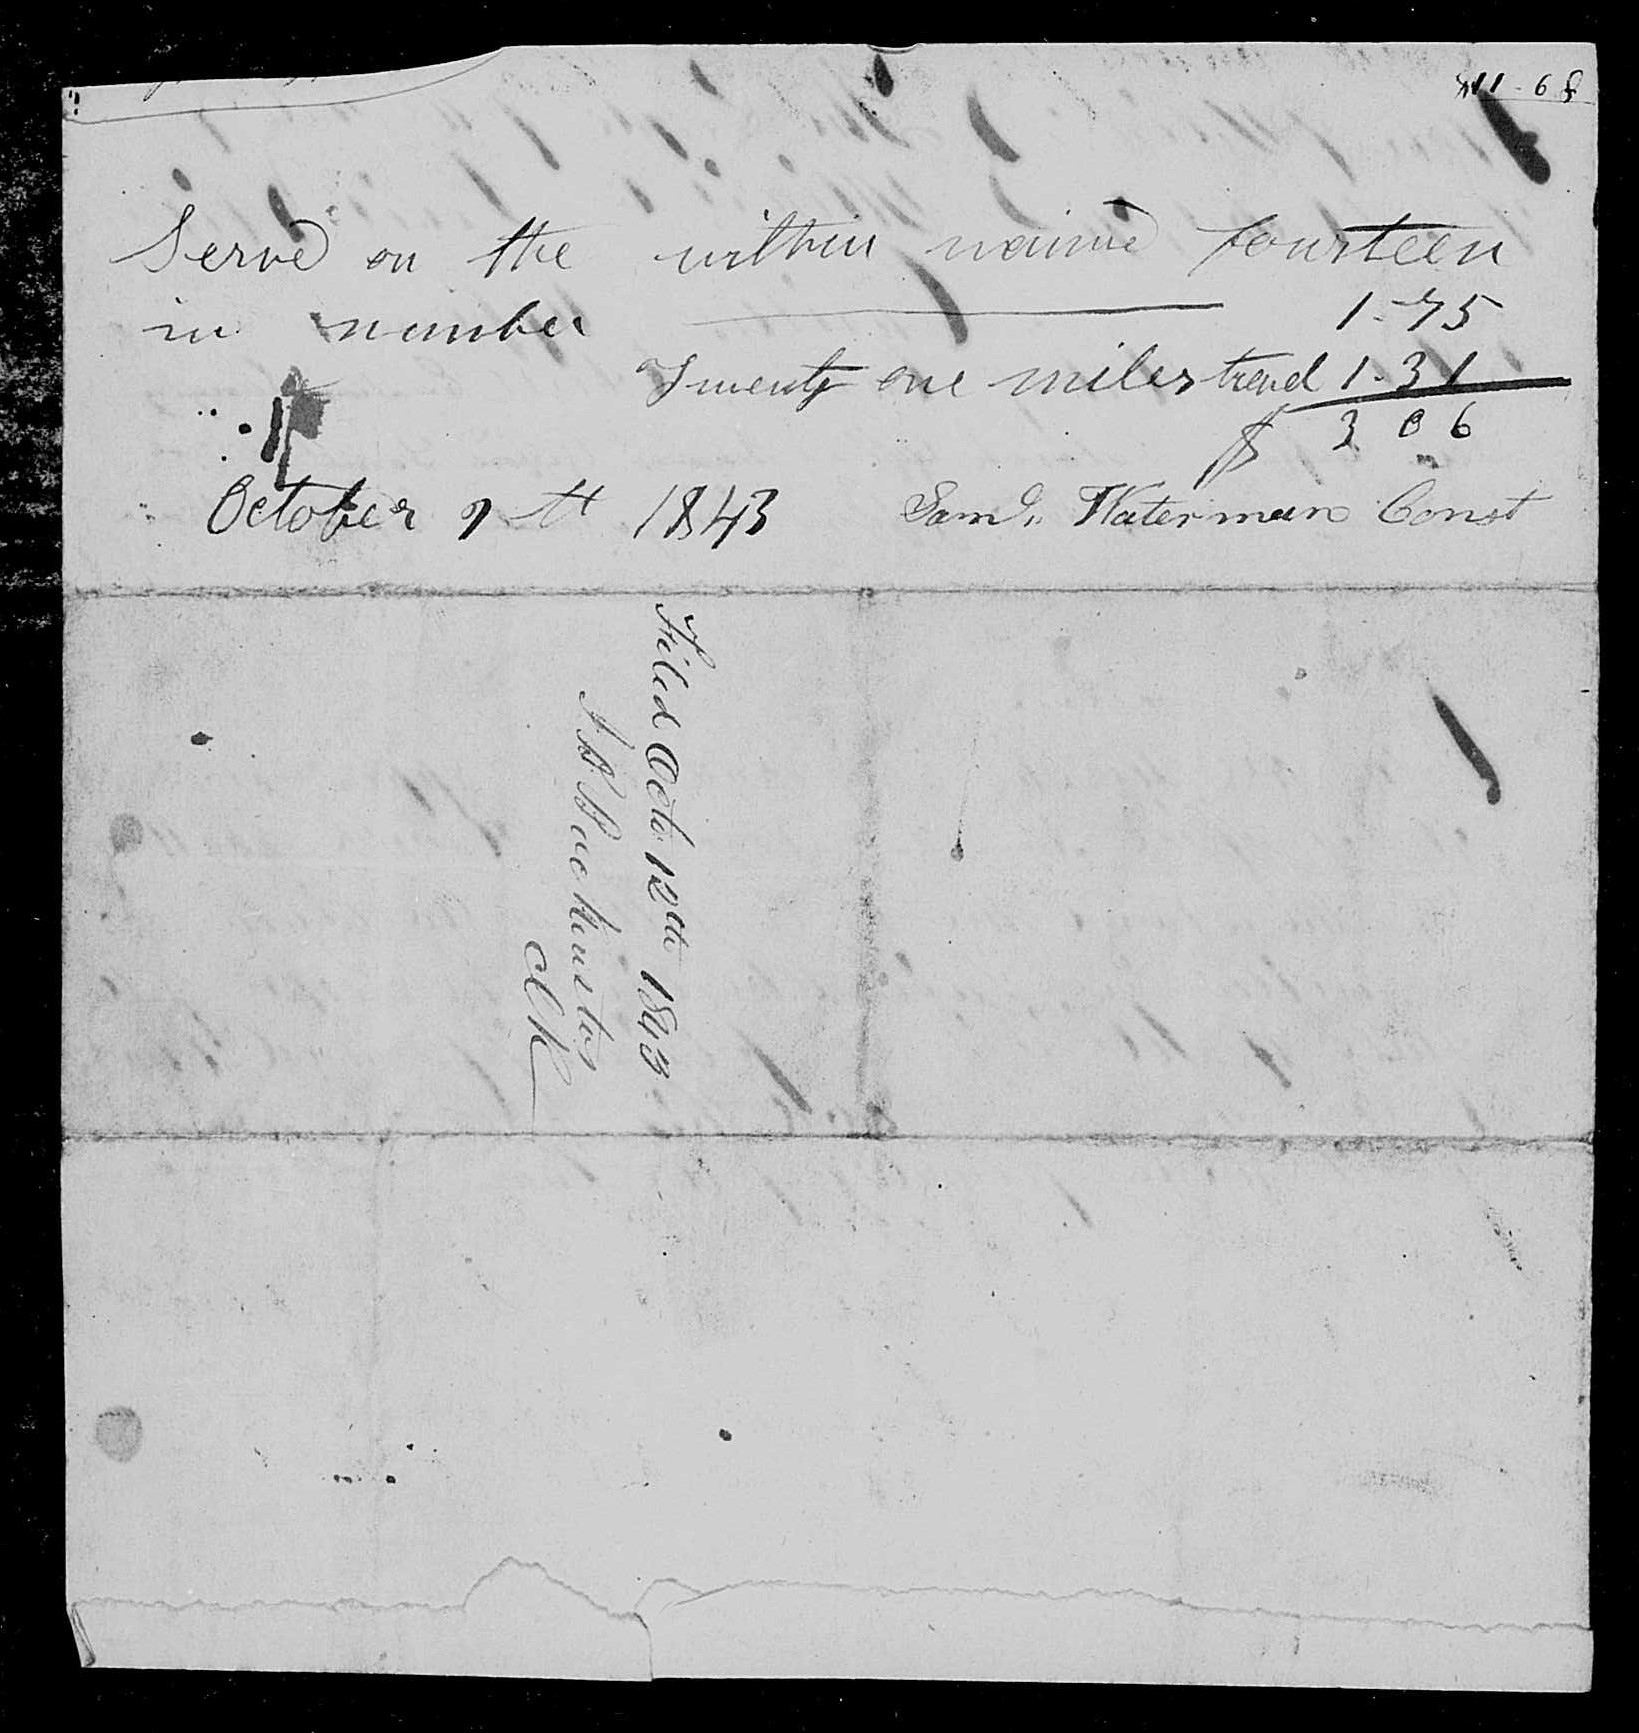 Serve on the within naimd fourteen
in number 1-75
Twenty one miles travel 1-31
$ 3 06
October 9th 1843 Saml. Waterman Const
Filed Octo 12th 1843
J B Backenstos
Clk